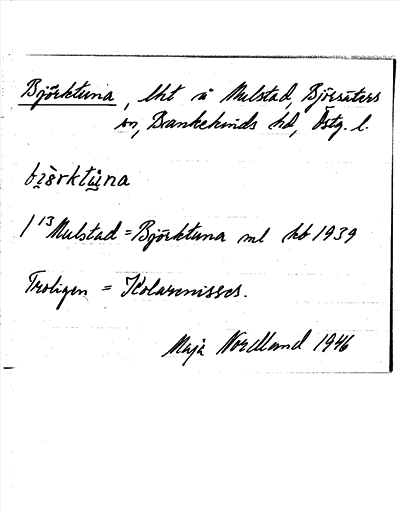 Björktuna, lht å Mulstad, Björsäters
sn, Bankekinds hd, Östg. l.
1 13 Mulstad = Björktuna ml hb 1939
Troligen = Kolarenisses.
Maja Nordlund 1946